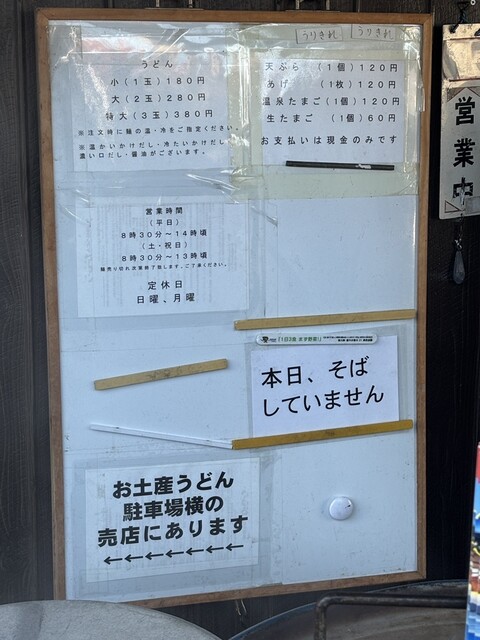 うりきれ
うりきれ
うどん
小(1玉)180円
大(2玉)280円
特大(3玉)380円
※注文時に麺の温・冷をご指定ください。
※温かいかけだし・冷たいかけだし、
濃い口だし・醤油がございます。
天ぷら (1個)120円
あげ (1枚)120円
温泉たまご(1個)120円
生たまご (1個)60円
お支払いは現金のみです
営業中
営業時間
(平日)
8時30分~14時頃
(土・祝日)
8時30分~13時頃
麺売り切れ次第終了致します。ご了承ください。
定休日
日曜、月曜
本日、そば
していません
お土産うどん
駐車場横の
売店にあります
←←←←←←←